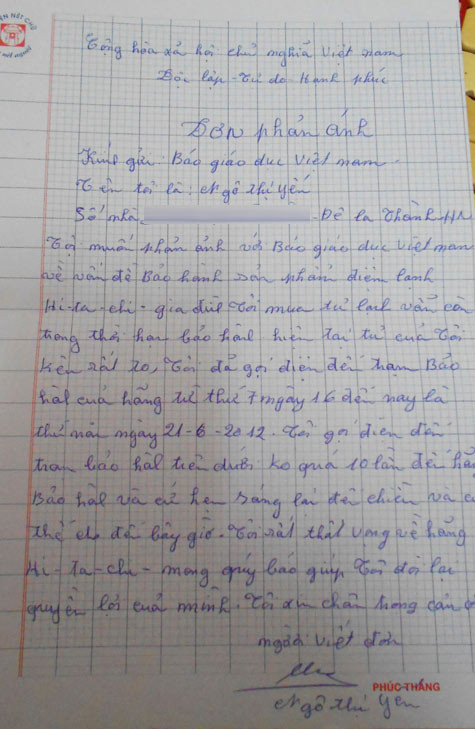 ỆN NÉT CHỮ
Cộng hòa xã hội chủ nghĩa Việt nam
Độc lập - Tự do - Hạnh phúc
Đơn phản ánh
Kính gửi: Báo giáo dục Việt nam.
Tên tôi là: Ngô thị Yến
Số nhà Đê la Thành HN
Tôi muốn phản ánh với Báo giáo dục Việt nam
về vấn đề Bảo hành sản phẩm điện lạnh
Hi-ta-chi - gia đình Tôi mua tủ lạnh vẫn còn
trong thời hạn bảo hành hiện tại tủ của Tôi
Kên rất to, Tôi đã gọi điện đến trạm Bảo
hành của hãng từ thứ 7 ngày 16 đến nay là
thứ năm ngày 21-6-2012. Tôi gọi điện đến
trạm bảo hành trên dưới ko quá 10 lần đề hãng
Bảo hành và cứ hẹn sáng lại đến chiều và cứ
thế cho đến bây giờ. Tôi rất thất vọng về hãng
Hi-ta-chi - mong quý báo giúp Tôi đòi lại
quyền lợi của mình. Tôi xin chân trọng cảm ơn
người viết đơn
PHÚC-THẮNG
Ngô thị Yến